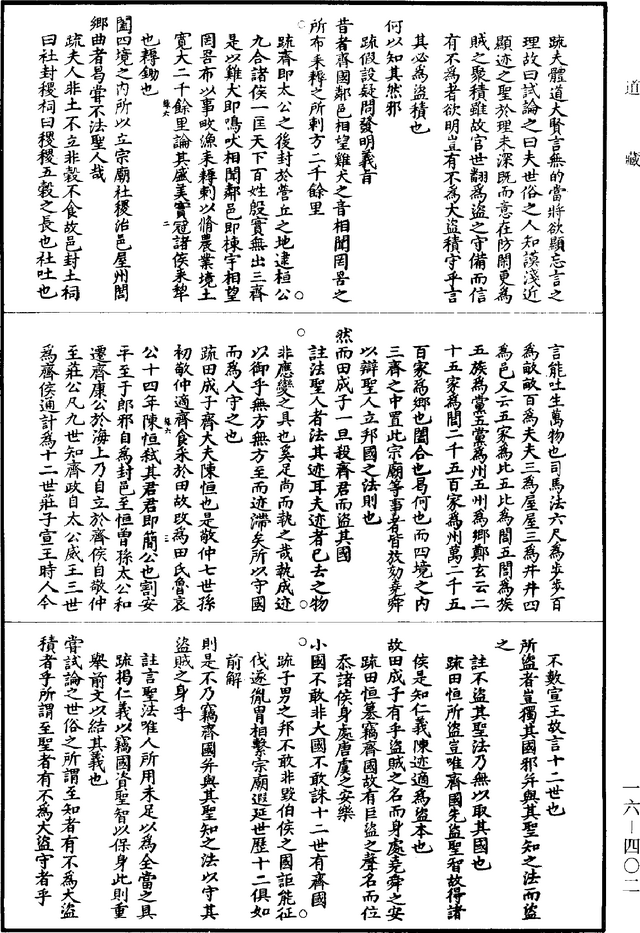 道藏
疏夫體道大賢言無的當將欲顯忘言之
理故曰試論之曰夫世俗之人知謨淺近
顯迹之聖於理未深既而意在防閑更為
賊之聚積雖故官世翻為盜之守備而信
有不為者欲明豈有不為大盜積守乎言
其必為盜積也
何以知其然邪
疏假設疑問發明義旨
昔者齊國鄰邑相望雞犬之音相聞罔罟之
所布耒耨之所刺方二千餘里
疏齊即太公之後封於營丘之地逮桓公
九合諸侯一匡天下百姓殷實無出三齊
是以雞犬即鳴吠相聞鄰邑即棟宇相望
罔罟布以事畋漁耒耨刺以脩農業境土
寬大二千餘里論其盛美實冠諸侯耒犂
也耨鋤也
闔四境之內所以立宗廟社稷治邑屋州閭
鄉曲者曷嘗不法聖人哉
疏夫人非土不立非穀不食故邑封土祠
曰社封稷祠曰稷稷五穀之長也社吐也
言能吐生萬物也司馬法六尺為步步百
為畝畝百為夫夫三為屋屋三為井井四
為邑又云五家為比五比為閭五閭為族
五族為黨五黨為州五州為鄉鄭玄云二
十五家為閭二千五百家為州萬二千五
百家為鄉也闔合也曷何也而四境之內
三齊之中置此宗廟等事者皆放効堯舜
以辯聖人立邦國之法則也
然而田成子一旦殺齊君而盜其國
註法聖人者法其迹耳夫迹者已去之物
非應變之具也奚足尚而執之哉執成迹
以御乎無方無方至而迹滯矣所以守國
而為人守之也
疏田成子齊大夫陳恒也是敬仲七世孫
初敬仲適齊食采於田故改為田氏魯哀
公十四年陳恒弒其君君即簡公也割安
平至于郎邪自為封邑至恒曾孫太公和
遷齊康公於海上乃自立於齊侯自敬仲
至莊公凡九世知齊政自太公威王三世
為齊侯通計為十二世莊子宣王時人今
不數宣王故言十二世也
所盜者豈獨其國邪并與其聖知之法而盜
之
註不盜其聖法乃無以取其國也
疏田恒所盜豈唯齊國先盜聖智故得諸
侯是知仁義陳迹適為盜本也
故田成子有乎盜賊之名而身處堯舜之安
疏田恒篡竊齊國故有巨盜之聲名而位
忝諸侯身處唐虞之安樂
小國不敢非大國不敢誅十二世有齊國
疏子男之邦不敢非毀伯侯之國詎能征
伐遂胤胄相繫宗廟遐延世歷十二俱如
前解
則是不乃竊齊國并與其聖知之法以守其
盜賊之身乎
註言聖法唯人所用未足以為全當之具
疏揭仁義以竊國資聖智以保身此則重
舉前文以結其義也
嘗試論之世俗之所謂至知者有不為大盜
積者乎所謂至聖者有不為大盜守者乎
一六-四〇二